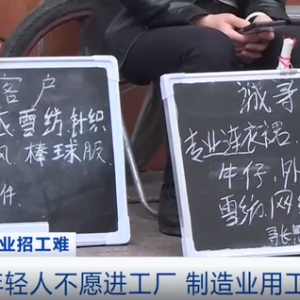 客户
雪纺.针织
风 棒球服
件.
诚寻
专业连衣裙
牛仔.外
雪纺.网
寻长
业招工难
年轻人不愿进工厂 制造业用工